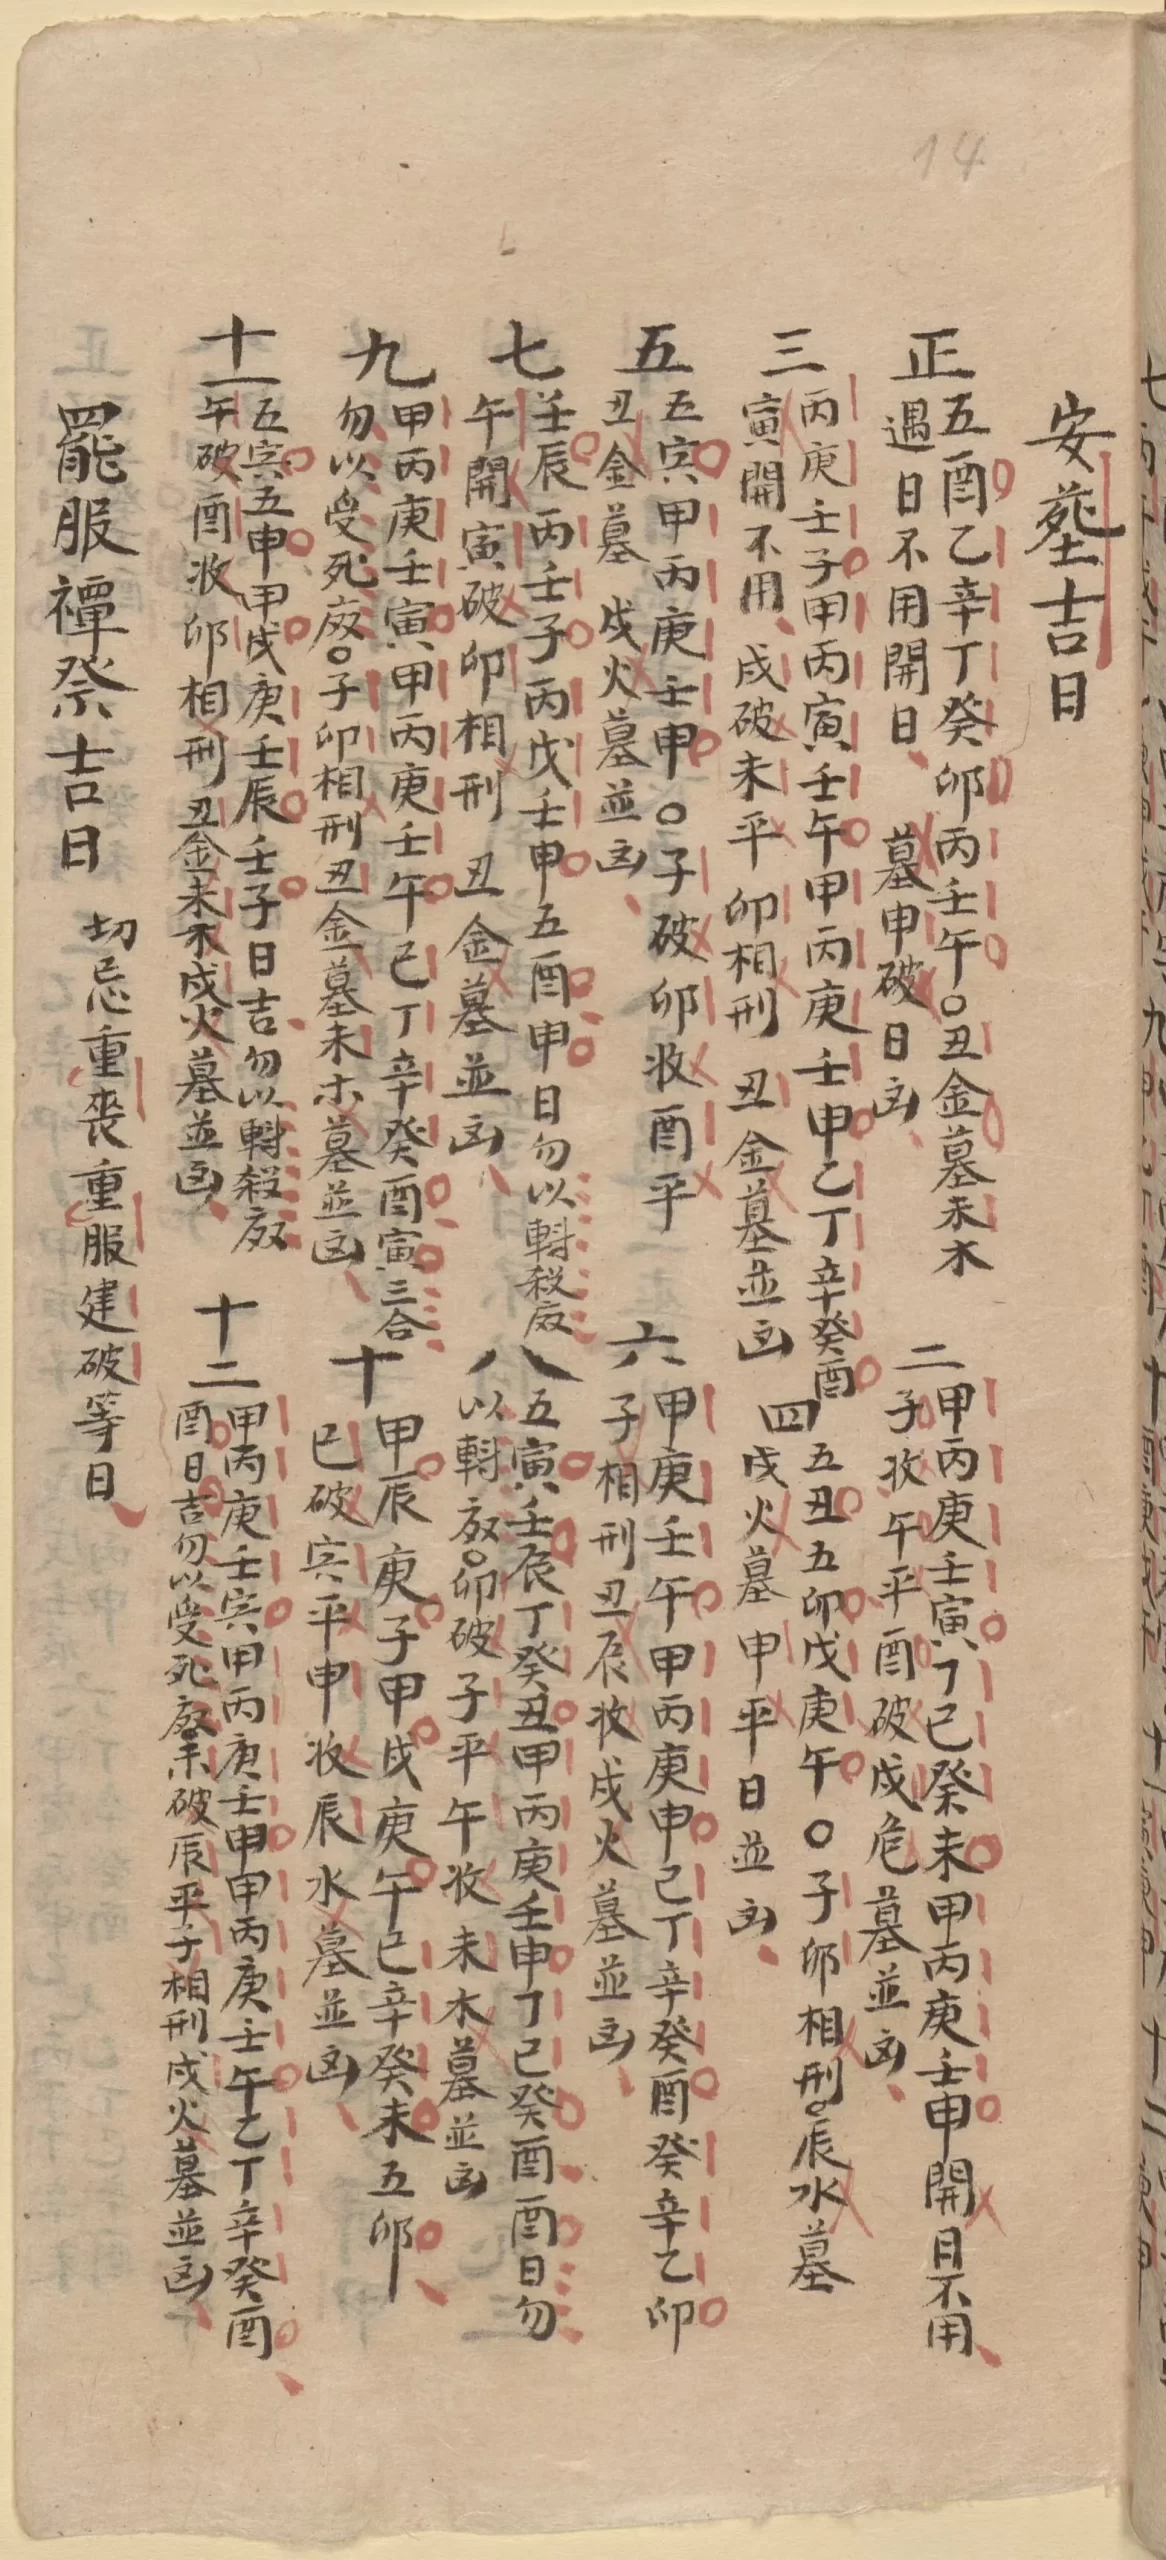 14
安葬吉日
正 五酉乙辛丁癸卯丙壬午○丑金墓未木
遇日不用開日墓申破日凶
二 甲丙庚壬寅丁己癸未甲丙庚壬申開日不用
子收午平酉破戌危墓並凶
三 丙庚壬子甲丙寅壬午甲丙庚壬申乙丁辛癸酉
寅開不用戌破未平卯相刑丑金墓並凶
四 五丑五卯戊庚午○子卯相刑辰水墓
戌火墓申平日並凶
五 五寅甲丙庚壬申○子破卯收酉平
丑金墓戌火墓並凶
六 甲庚壬午甲丙庚申己丁辛癸酉癸辛乙卯
子相刑丑辰收戌火墓並凶
七 壬辰丙壬子丙戊壬申五酉申日勿以轊殺廢
午開寅破卯相刑丑金墓並凶
八 五寅壬辰丁癸丑甲丙庚壬申丁己癸酉酉日勿
以轊廢○卯破子平午收未木墓並凶
九 甲丙庚壬寅甲丙庚壬午己丁辛癸酉寅三合
勿以受死廢○子卯相刑丑金墓未木墓並凶
十 甲辰庚子甲戌庚午己辛癸未五卯
巳破寅平申收辰水墓並凶
十一 五寅五申甲戌庚壬辰壬子日吉勿以轊殺廢
午破酉收卯相刑丑金未木戌火墓並凶
十二 甲丙庚壬寅甲丙庚壬申甲丙庚壬午乙丁辛癸酉
酉日吉勿以受死廢未破辰平子相刑戌火墓並凶
罷服禫祭吉日 切忌重喪重服建破等日